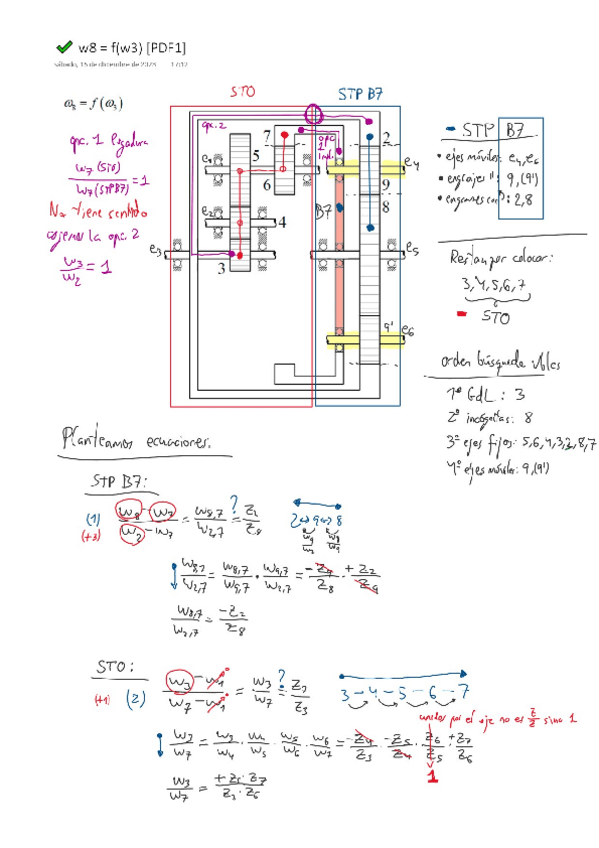 w8 = f(w3) [PDF1]
sábado, 16 de diciembre de 2023 17:12
ω₈ = f(ω₃)
STO
STP B7
opc. 2
opc. 1 ligadura
w7 (STO)
w7 (STPB7) = 1
No tiene sentido
cogemos la opc. 2
w3/w2 = 1
7
5
6
4
3
2
9
8
9'
B7
e2
e3
e4
e5
e6
STP B7
• ejes móviles: e4, e6
• engranajes ": 9, (9')
2, 8
Restan por colocar:
3, 4, 5, 6, 7
STO
orden búsqueda vbles
1º GdL : 3
2º incógnitas: 8
3º ejes fijos: 5,6,4,3,2,8,7
4º ejes móviles: 9, (9')
Planteamos ecuaciones:
STP B7:
(1) (w8 - w7)/(w2 - w7) = w8,7/w2,7 =? z2/z8
(+3)
2 ↔ 9 ↔ 8
w8,7/w2,7 = w8,7/w9,7 · w9,7/w2,7 = -z9/z8 · +z2/z9
w8,7/w2,7 = -z2/z8
STO:
(+1) (2) (w3 - w1)/(w7 - w1) = w3/w7 =? z7/z3
3 - 4 - 5 - 6 - 7
unidos por el eje no es z/z sino 1
w3/w7 = w3/w4 · w4/w5 · w5/w6 · w6/w7 = -z4/z3 · -z5/z4 · z6/z5 · +z7/z6
1
w3/w7 = +z5·z7/z3·z6